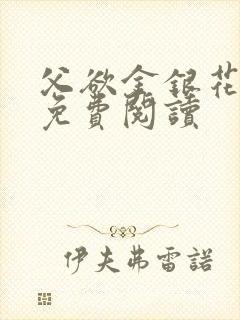 父欲金銀花
免費閱讀
伊夫弗雷諾